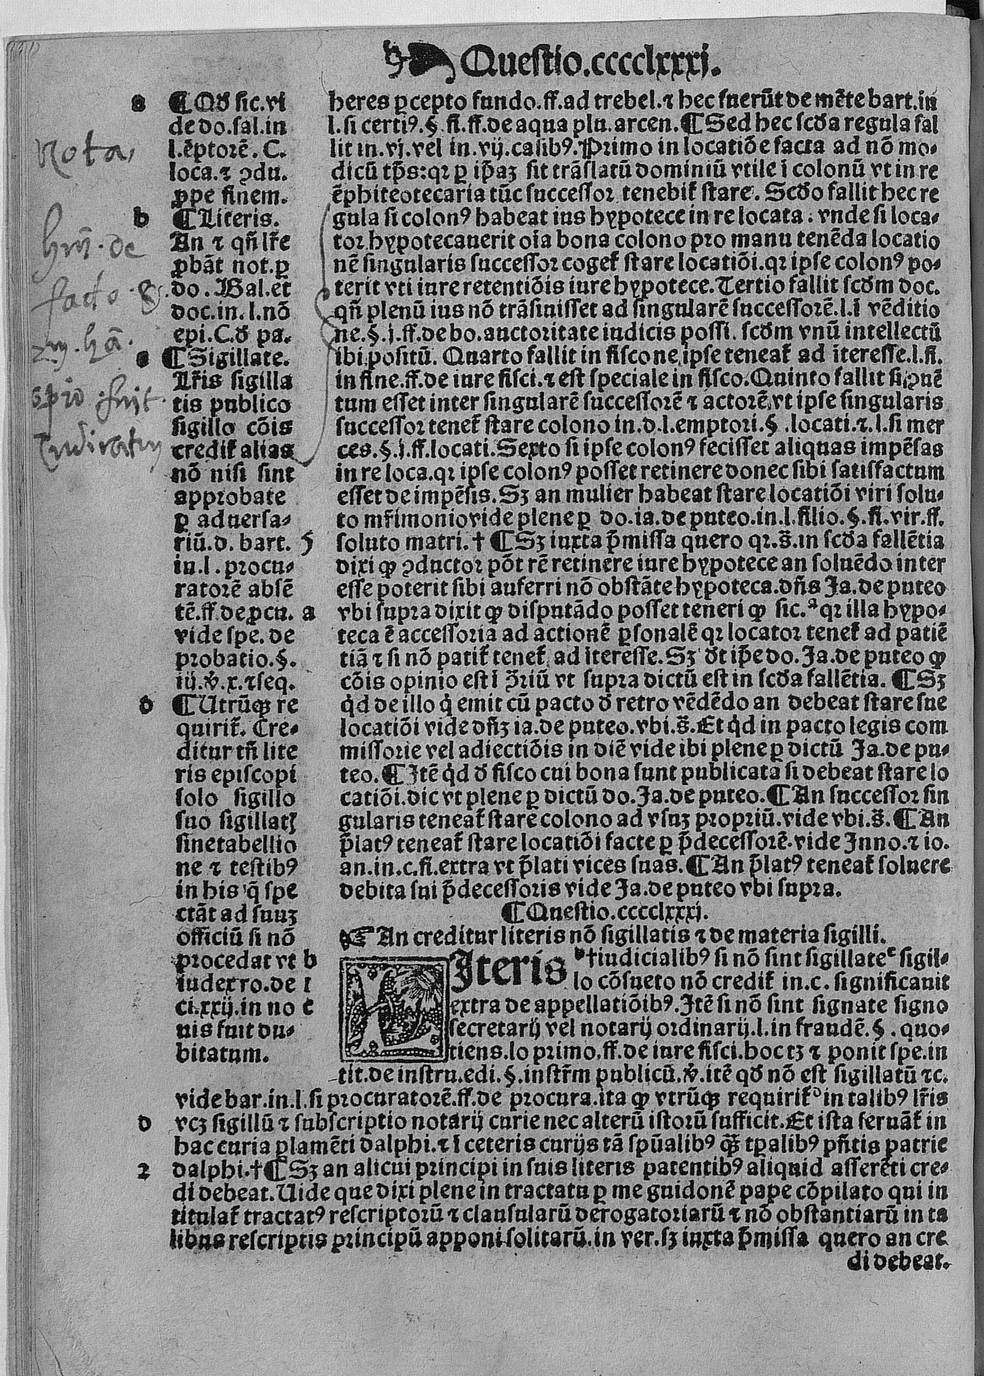 Questio.cccclxxxj.
a ¶Qď sic.vi
de do.sal.in
l.ēptorē.C.
loca.⁊ ꝯdu.
ꝓpe finem.
b ¶Literis.
An ⁊ qñ lr̄e
ꝓbāt not.ꝑ
do. Bal.et
doc.in.l.nō
epi.C.ď pa.
c ¶Sigillate.
Lr̄is sigilla
tis publico
sigillo cōis
creditᷣ alias
nō nisi sint
approbate
ꝑ aduersa-
riū.d. bart.
in.l.procu-
ratorē absē
tē.ff.de.ꝓcu.
vide spe. de
probatio.§.
iij.ꝟ.x.⁊seq.
d ¶Utrūqꝫ re
quiritᷣ. Cre-
ditur tñ lite
ris episcopi
solo sigillo
suo sigillatꝫ
sine tabellio
ne ⁊ testibꝰ
in his q̄ spe
ctāt ad suuꝫ
officiū si nō
procedat vt
iudex ro.de
ci.xxij.in no
uis fuit du-
bitatum.
Nota,
de
facto
heres ꝑcepto fundo.ff.ad trebel.⁊ hec fuerūt de mēte bart.in
l.si certiꝰ.§.fi.ff.de aqua plu.arcen.¶Sed hec scďa regula fal
lit in.vj.vel in.vij.casibꝰ.Primo in locatiōe facta ad nō mo-
dicū tp̄s:qꝛ ꝑ ip̄aꝫ sit trāslatū dominiū vtile ī colonū vt in re
ēphiteotecaria tūc successor tenebitᷣ stare. Scďo fallit hec re
gula si colonꝰ habeat ius hypotece in re locata.vnde si loca-
tor hypotecauerit oīa bona colono pro manu tenēda locatio
nē singularis successor cogetᷣ stare locatiōi.qꝛ ipse colonꝰ po-
terit vti iure retentiōis iure hypotece.Tertio fallit scďm doc.
qñ plenū ius nō trāsiuisset ad singularē successorē.l.ī vēditio
ne.§.j.ff.de bo.auctoritate iudicis possi.scďm vnū intellectū
ibi positū. Quarto fallit in fisco ne.ipse teneatᷣ ad īteresse.l.fi.
in fine.ff.de iure fisci.⁊ est speciale in fisco.Quinto fallit si ꝯuē
tum esset inter singularē successorē ⁊ actorē.vt ipse singularis
successor tenetᷣ stare colono in.d.l.emptori.§.locati.⁊.l.si mer
ces.§.j.ff.locati.Sexto si ipse colonꝰ fecisset aliquas impēsas
in re loca.qꝛ ipse colonꝰ posset retinere donec sibi satisfactum
esset de impēsis.Sꝫ an mulier habeat stare locatiōi viri solu-
to mr̄imonio vide plene ꝑ do.ia.de puteo.in.l.filio.§.fi.vir.ff.
5 soluto matri.†¶Sꝫ iuxta p̄missa quero qꝛ.s̄.in scďa fallētia
dixi ꝙ ꝯductor pōt rē retinere iure hypotece an soluēdo inter
esse poterit sibi auferri nō obstāte hypoteca.dñs Ja.de puteo
a vbi supra dixit ꝙ disputādo posset teneri ꝙ sic.ᵃ qꝛ illa hypo-
teca ē accessoria ad actionē ꝑsonalē qꝛ locator tenetᷣ ad patiē
tiā ⁊ si nō patitᷣ tenetᷣ ad īteresse.Sꝫ ďt ip̄e do. Ja.de puteo ꝙ
cōis opinio est ī ꝯ̄riū vt supra dictū est in scďa fallētia. ¶Sꝫ
q̇d de illo q̇ emit cū pacto ď retro vēdēdo an debeat stare sue
locatiōi vide dñꝫ ia.de puteo.vbi.s̄.Et q̇d in pacto legis com
missorie vel adiectiōis in diē vide ibi plene ꝑ dictū Ja.de pu-
teo.¶Itē q̇d ď fisco cui bona sunt publicata si debeat stare lo
catiōi.dic vt plene ꝑ dictū do.Ja.de puteo.¶An successor sin
gularis teneatᷣ stare colono ad vsuꝫ propriū.vide vbi.s̄.¶An
p̄latꝰ teneatᷣ stare locatiōi facte ꝑ p̄decessorē.vide Inno.⁊ io.
an.in.c.fi.extra vt p̄lati vices suas.¶An p̄latꝰ teneatᷣ soluere
debita sui p̄decessoris vide Ja.de puteo vbi supra.
¶Questio.cccclxxxj.
☞An creditur literis nō sigillatis ⁊ de materia sigilli.
b Literis ᵇ†iudicialibꝰ si nō sint sigillateᶜ sigil-
1 lo cōsueto nō creditᷣ in.c.significauit
c extra de appellatiōibꝰ.Itē si nō sint signate signo
secretarij vel notarij ordinarij.l.in fraudē.§.quo-
tiens.lo primo.ff.de iure fisci.hoc tꝫ ⁊ ponit spe.in
tit.de instru.edi.§.instr̄m publicū.ꝟ.itē qď nō est sigillatū ⁊c.
vide bar.in.l.si procuratorē.ff.de procura.ita ꝙ vtrūqꝫ requiritᷣᵈ in talibꝰ lr̄is
d vcꝫ sigillū ⁊ subscriptio notarij curie nec alterū istorū sufficit.Et ista seruātᷣ in
hac curia plamēti dalphi.⁊ ī ceteris curijs tā spūalibꝰ q̄ꝫ tꝑalibꝰ pñtis patrie
2 dalphi.†¶Sꝫ an alicui principi in suis literis patentibꝰ aliquid asserēti cre-
di debeat.Uide que dixi plene in tractatu ꝑ me guidonē pape cōpilato qui in
titulatᷣ tractatꝰ rescriptorū ⁊ clausularū derogatoriarū ⁊ nō obstantiarū in ta
libus rescriptis principū apponi solitarū.in ver.sꝫ iuxta p̄missa quero an cre
di debeat.